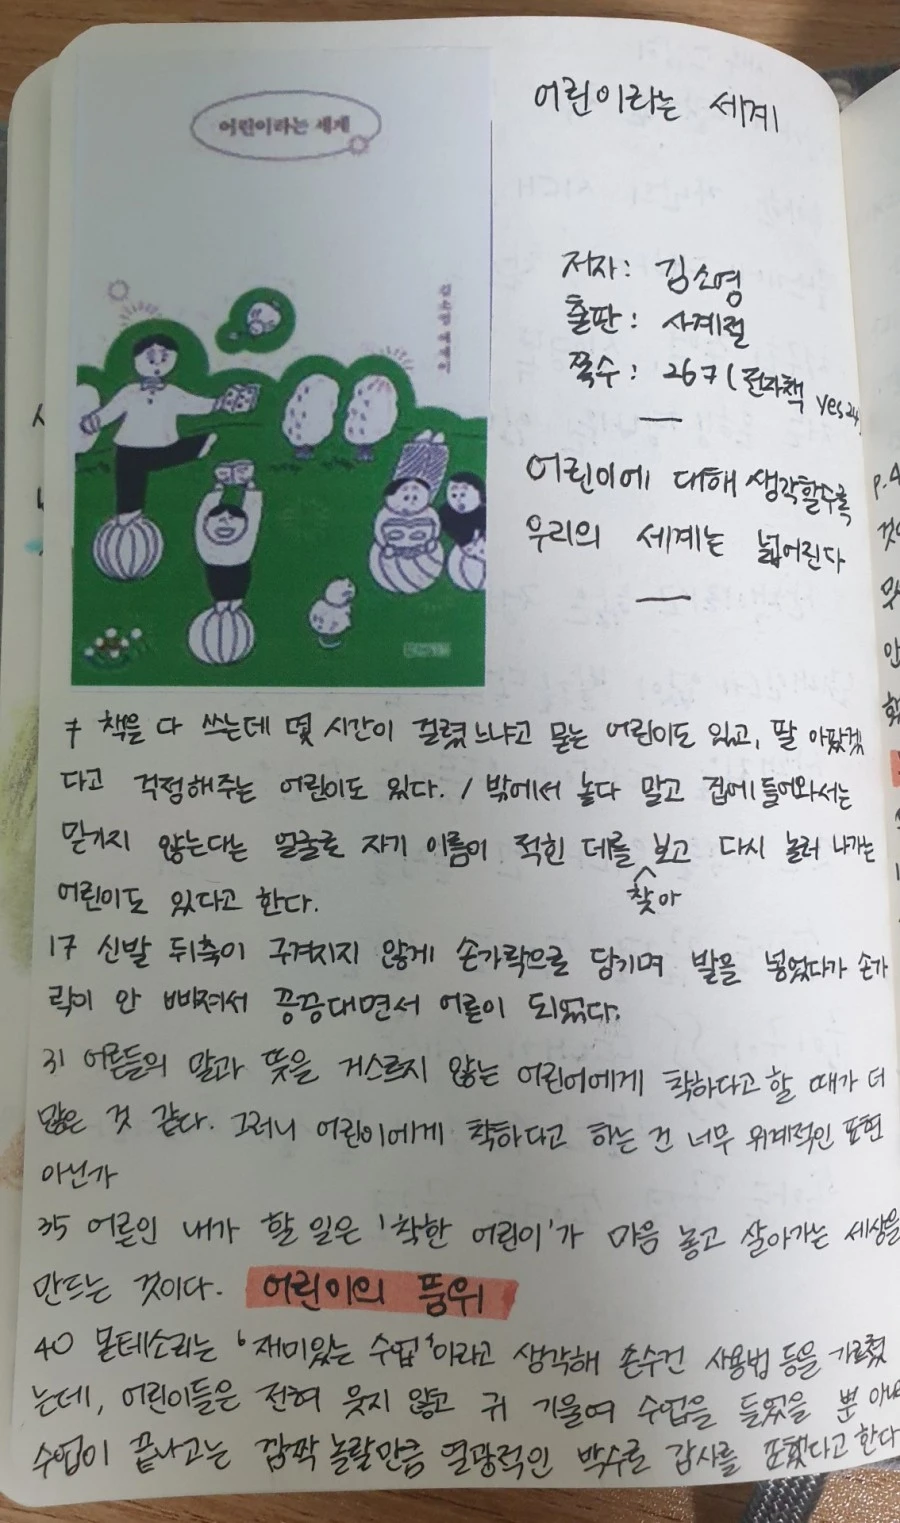 어린이라는 세계
김소영 에세이
어린이라는 세계
저자: 김소영
출판: 사계절
쪽수: 267 (전자책 yes24)
어린이에 대해 생각할수록
우리의 세계는 넓어린다
7 책을 다 쓰는데 몇 시간이 걸렸느냐고 묻는 어린이도 있고, 팔 아팠겠
다고 걱정해주는 어린이도 있다. / 밖에서 놀다 말고 집에 들어와서는
믿기지 않는다는 얼굴로 자기 이름이 적힌 데를 보고 다시 놀러 나가는
찾아
어린이도 있다고 한다.
17 신발 뒤축이 구겨지지 않게 손가락으로 당기며 발을 넣었다가 손가
락이 안 빠져서 끙끙대면서 어른이 되었다.
31 어른들의 말과 뜻을 거스르지 않는 어린이에게 착하다고 할 때가 더
많은 것 같다. 그러니 어린이에게 착하다고 하는 건 너무 위계적인 표현
아닌가
35 어른인 내가 할 일은 '착한 어린이'가 마음 놓고 살아가는 세상을
만드는 것이다. 어린이의 품위
40 몬테소리는 '재미있는 수업'이라고 생각해 손수건 사용법 등을 가르쳤
는데, 어린이들은 전혀 웃지 않고 귀 기울여 수업을 들었을 뿐 아니
수업이 끝나고는 깜짝 놀랄만큼 열광적인 박수로 감사를 표했다고 한다